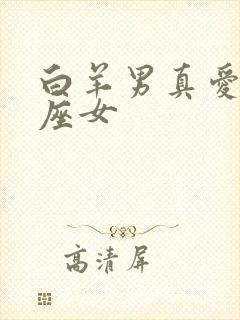 白羊男真愛
座女
高清屏